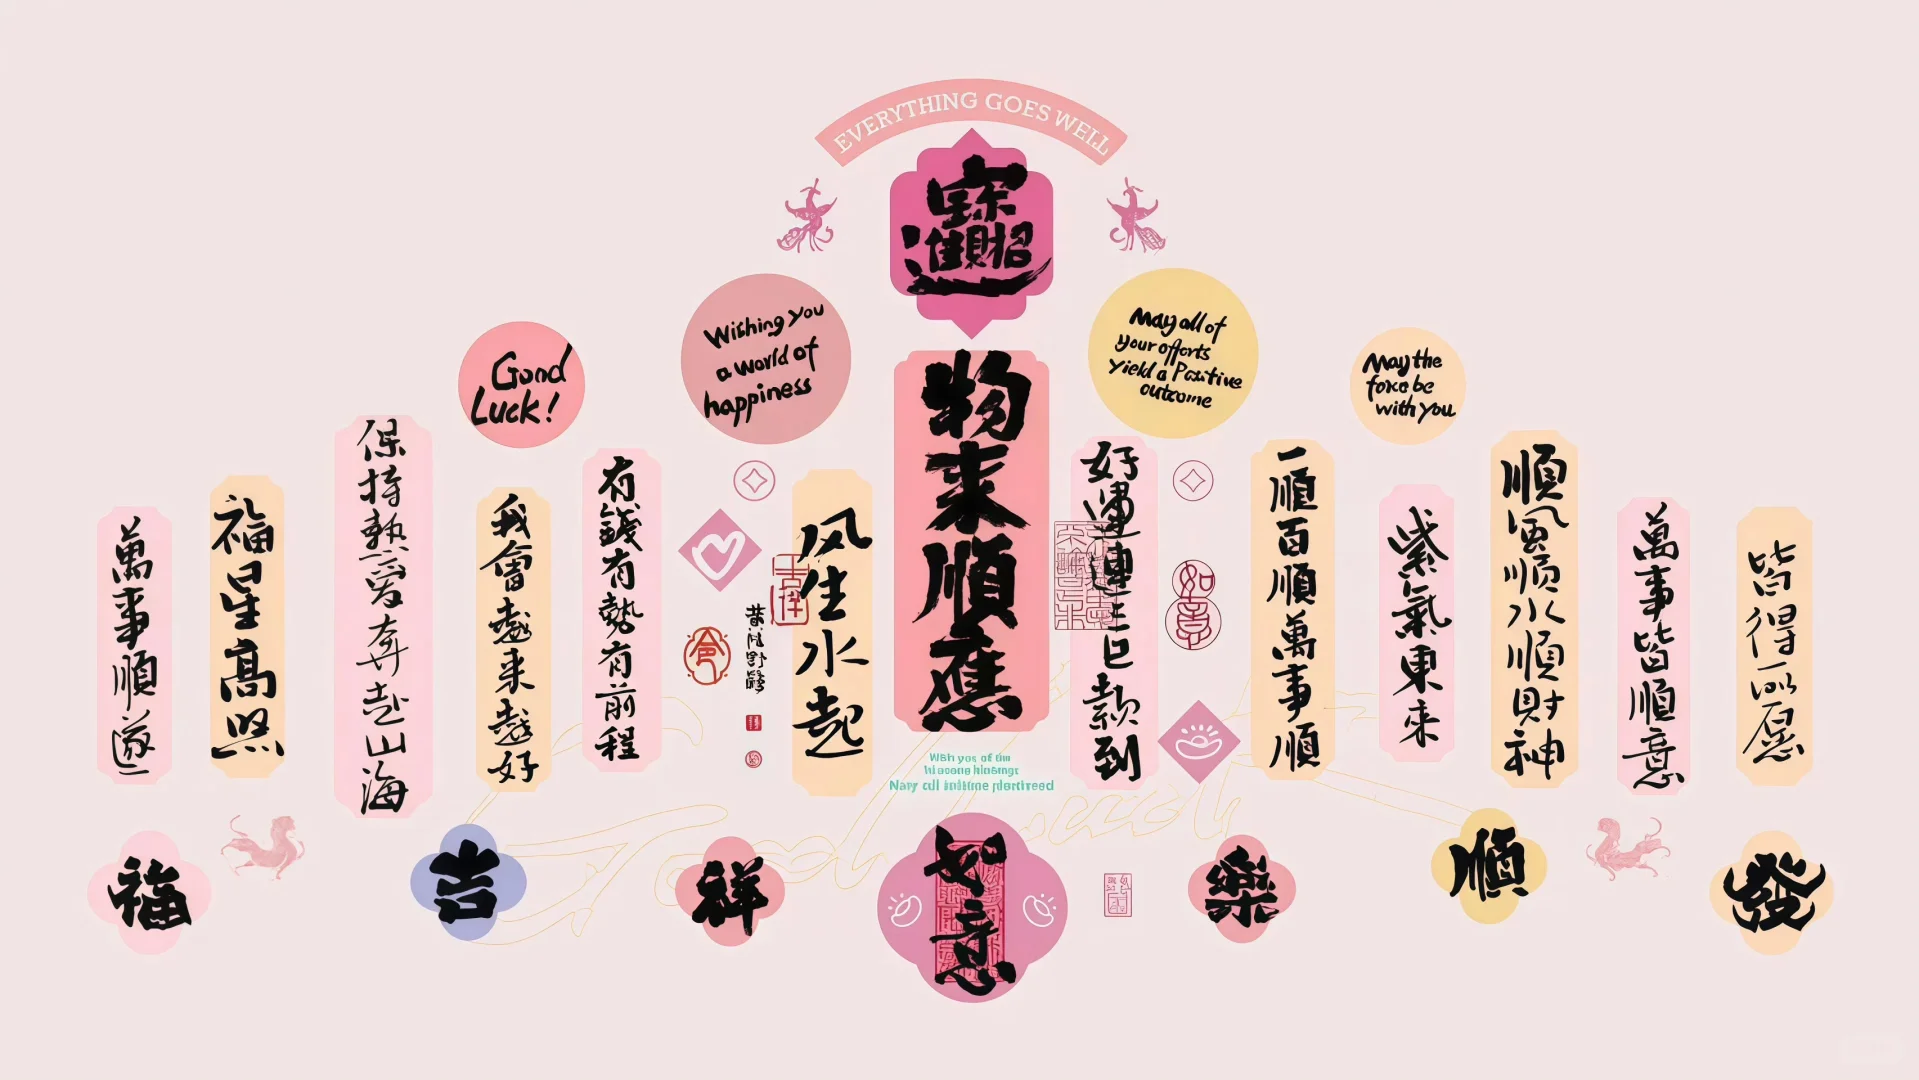 EVERYTHING GOES WELL
招財進寳
Good
Luck!
Wishing you
a world of
happiness
May all of
your efforts
Yield a Positive
outcome
May the
force be
with you
萬事順遂
福星高照
保持熱愛奔赴山海
我會越来越好
有錢有勢有前程
风生水起
物来順應
好運連連巨款到
一順百順萬事順
紫氣東来
順風順水順財神
萬事皆順意
皆得所愿
吉祥
如意
福
吉
祥
如意
樂
順
發